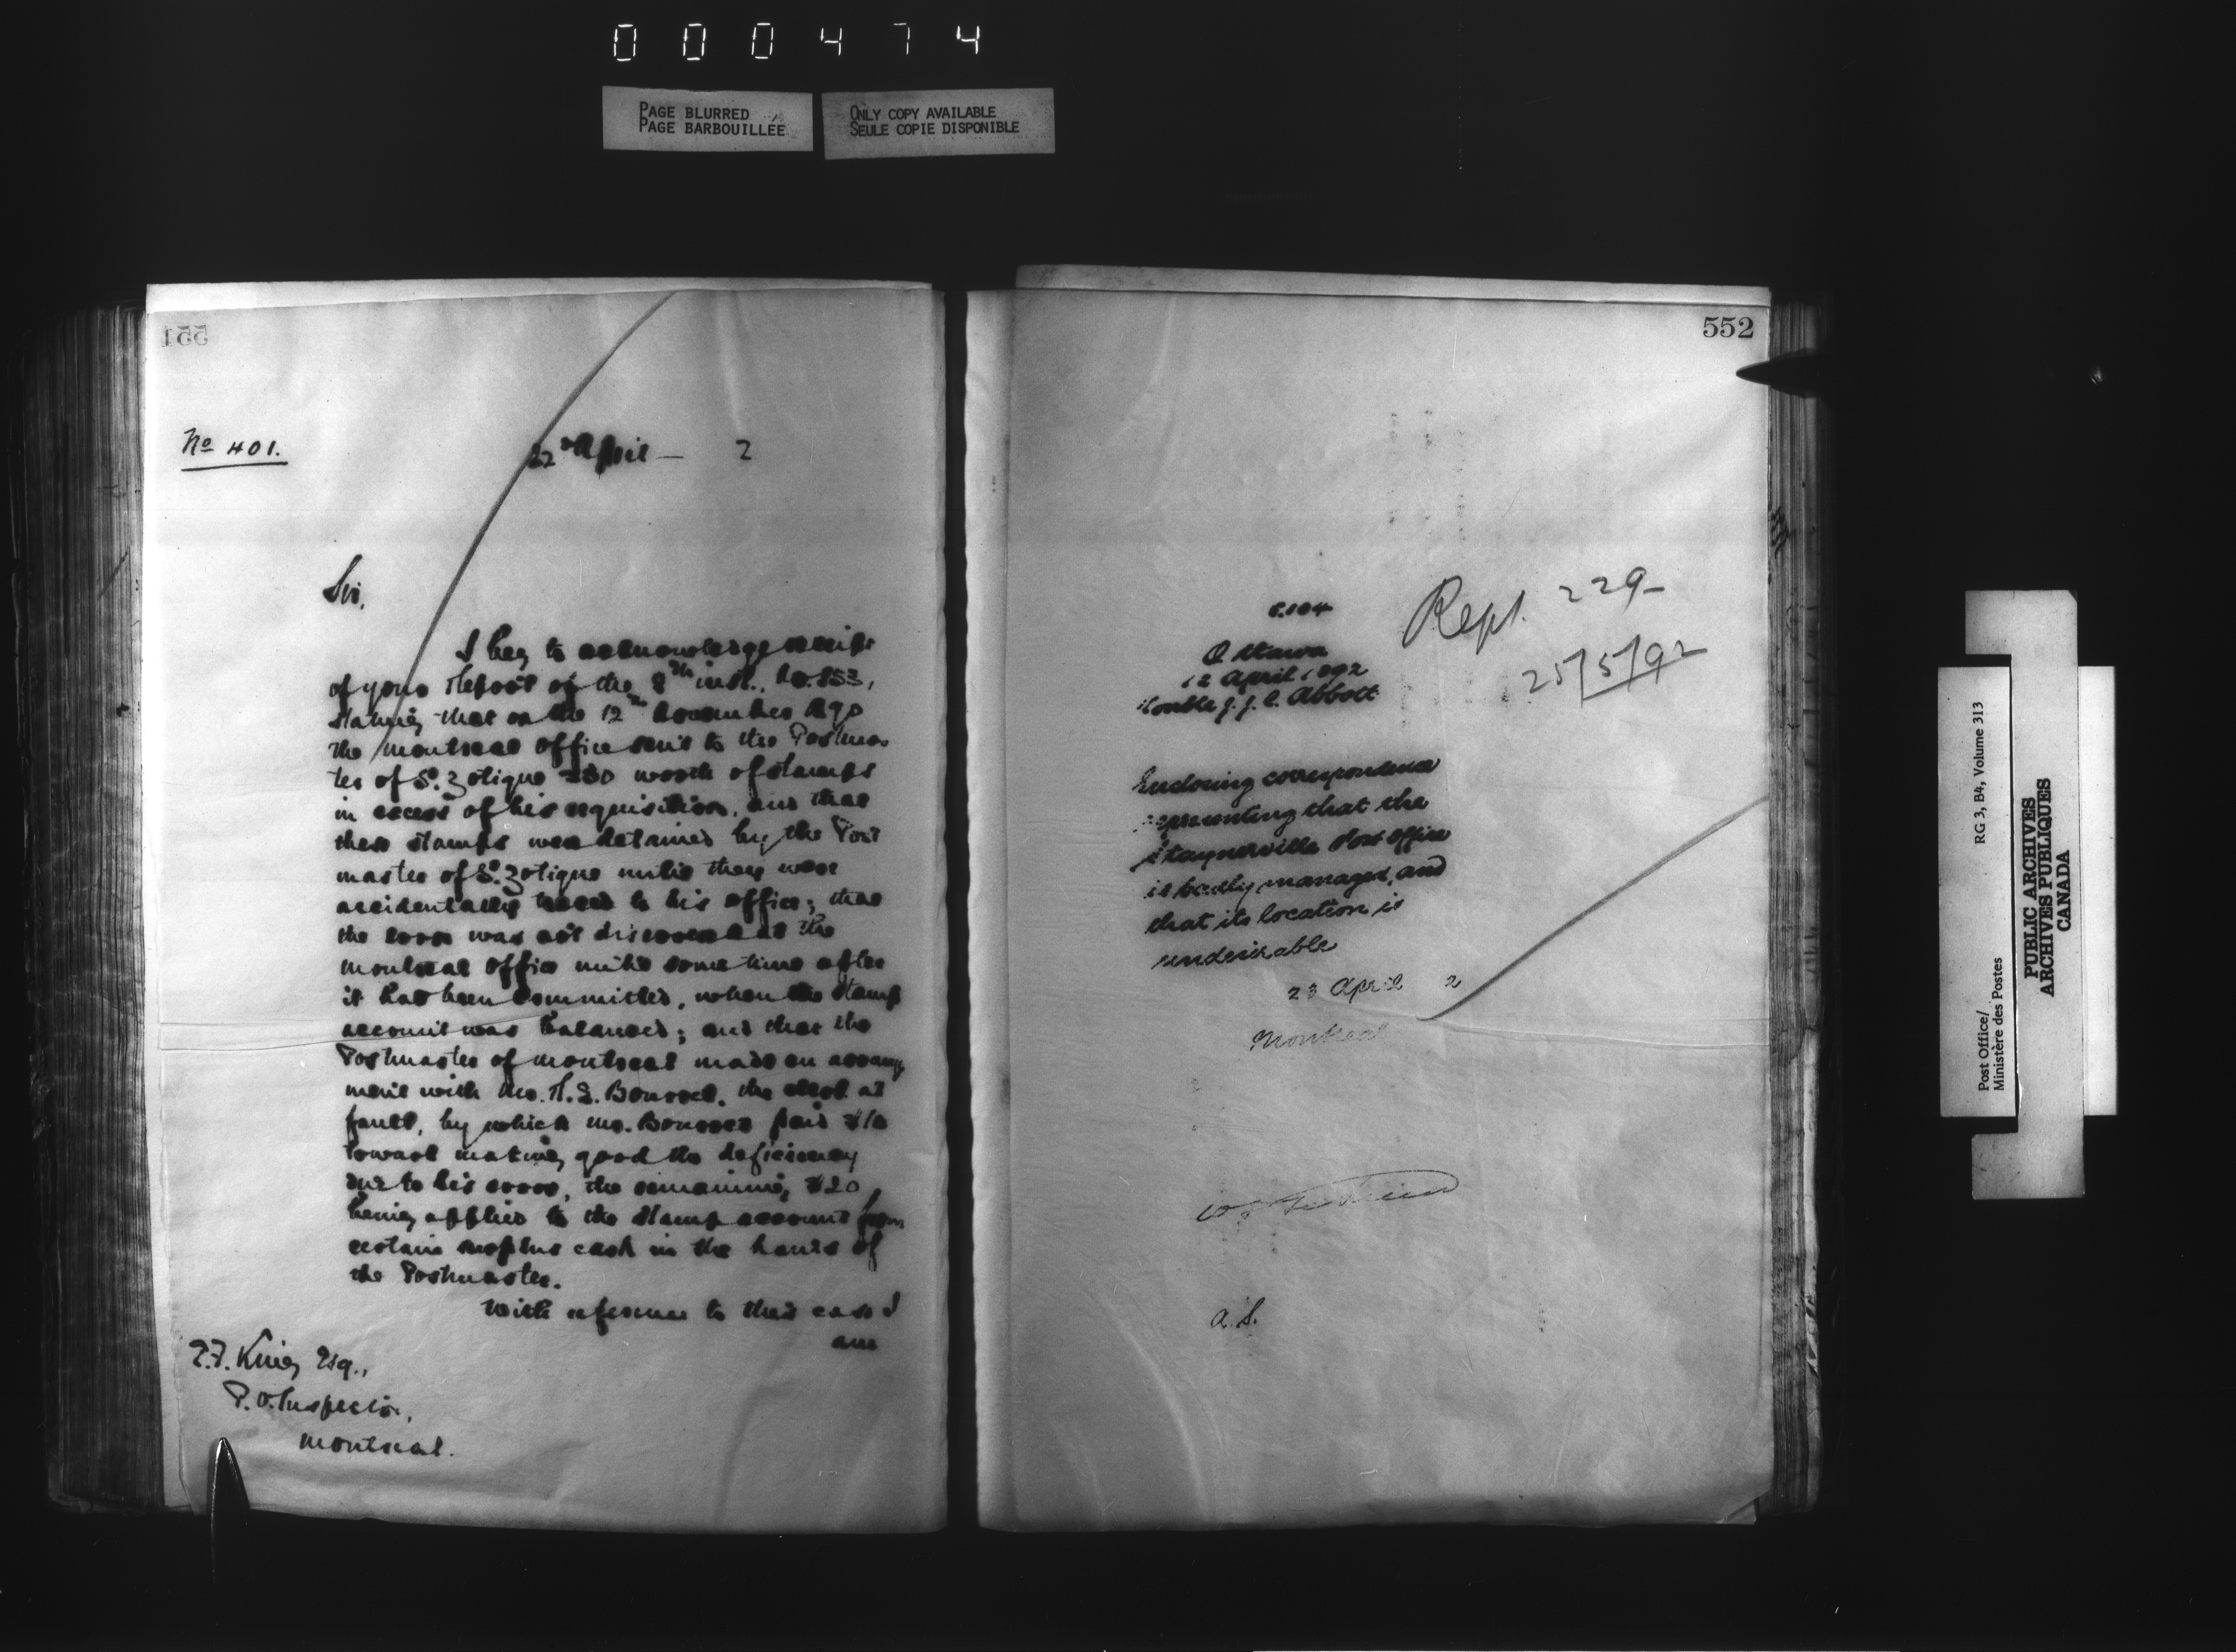 000474
PAGE BLURRED
PAGE BARBOUILLÉE
ONLY COPY AVAILABLE
SEULE COPIE DISPONIBLE
551
No 401.
22nd April — 2
Sir,
I beg to acknowledge receipt
of your Report of the 8th inst., No. 853,
stating that on the 12th November ago
the Montreal Office sent to the Postmas
ter of St. Zotique $30 worth of stamps
in excess of his requisition, and that
these stamps were detained by the Post
master of St. Zotique until they were
accidentally traced to his office; that
the error was not discovered at the
Montreal Office until some time after
it had been committed, when the stamp
account was balanced; and that the
Postmaster of Montreal made an arrange
ment with Mr. H. S. the clerk at
fault, by which Mr. paid $10
toward making good the deficiency
due to his error, the remaining $20
being applied to the stamp account from
certain surplus cash in the hands of
the Postmaster.
With reference to this case I
am
King Esq.,
P.O. Inspector,
Montreal.
552
Rept. 229
25/5/92
C.104
Ottawa
12 April 1892
Honble J. J. C. Abbott
Enclosing correspondence
representing that the
Staynerville Post Office
is badly managed, and
that its location is
undesirable
23 April 2
Montreal
a. S.
Post Office/
Ministère des Postes
RG 3, B4, Volume 313
PUBLIC ARCHIVES
ARCHIVES PUBLIQUES
CANADA